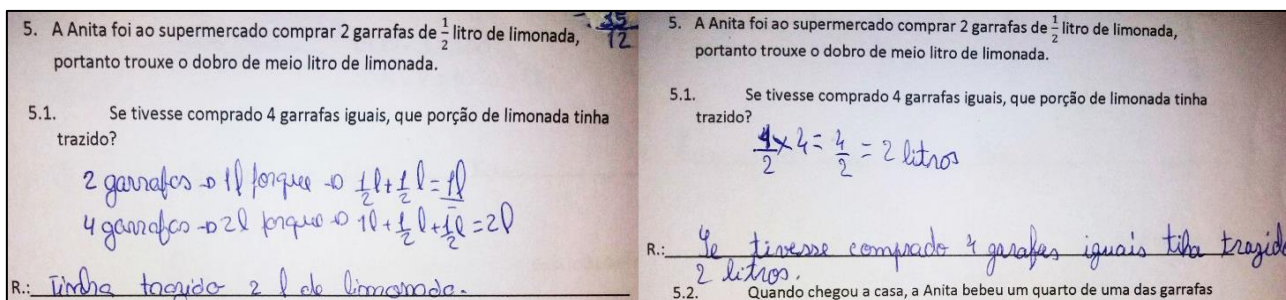 5. A Anita foi ao supermercado comprar 2 garrafas de 1/2 litro de limonada,
portanto trouxe o dobro de meio litro de limonada.
35/12
5.1. Se tivesse comprado 4 garrafas iguais, que porção de limonada tinha
trazido?
2 garrafas → 1l porque → 1/2 l + 1/2 l = 1l
4 garrafas → 2l porque → 1l + 1/2 l + 1/2 l = 2l
R.: Tinha trazido 2 l de limonada.
5. A Anita foi ao supermercado comprar 2 garrafas de 1/2 litro de limonada,
portanto trouxe o dobro de meio litro de limonada.
5.1. Se tivesse comprado 4 garrafas iguais, que porção de limonada tinha
trazido?
1/2 × 4 = 4/2 = 2 litros
R.: Se tivesse comprado 4 garafas iguais tiha trazido
2 litros.
5.2. Quando chegou a casa, a Anita bebeu um quarto de uma das garrafas